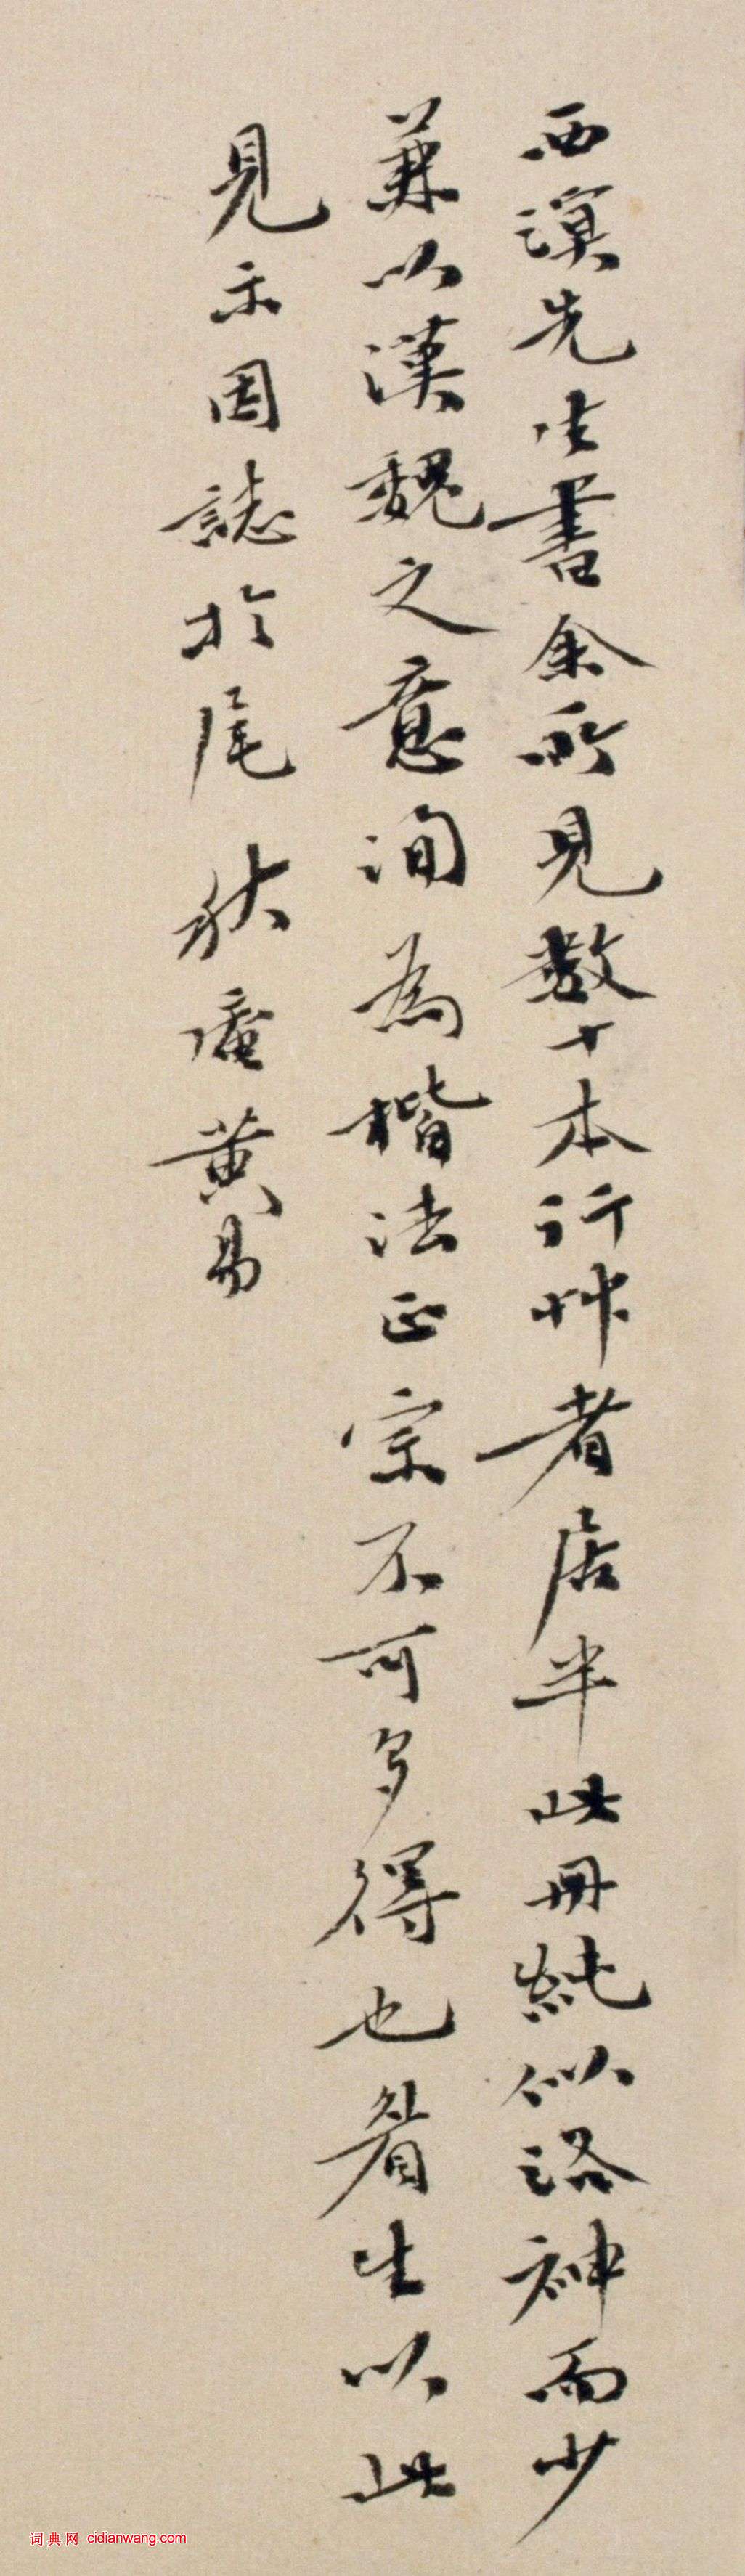 西溟先生書余所見數十本行艸者居半此冊純似洛神而少
兼以漢魏之意洵為楷法正宗不可多得也看生以此
見示因誌於尾 秋盦黄易
词典网 cidianwang.com